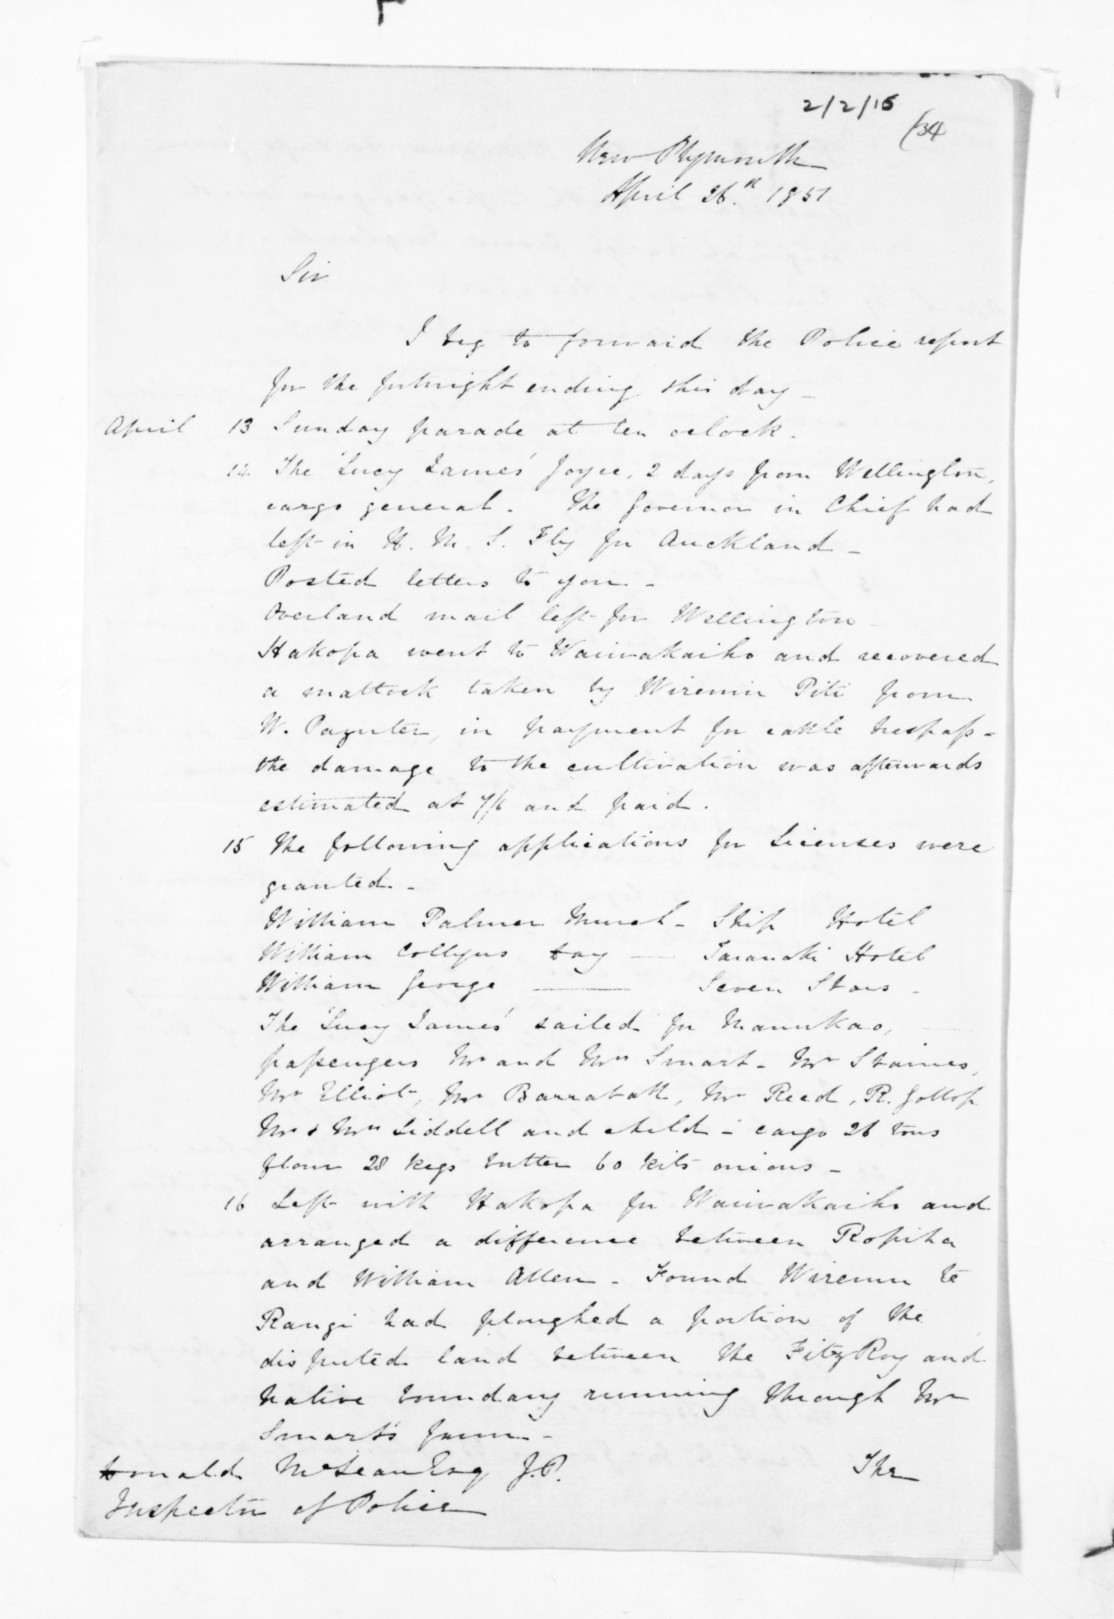 2/2/15
(34
New Plymouth
April 26.th 1851
Sir
I beg to forward the Police report
for the fortnight ending this day -
April 13 Sunday parade at ten oclock.
14 The 'Lucy James' Joyce, 2 days from Wellington,
cargo general. The Governor in Chief had
left in H. M. S. Fly for Auckland -
Posted letters to you -
Overland mail left for Wellington -
Hakopa went to Waiwakaiho and recovered
a mattock taken by Wiremu Piti from
W. Paynter, in payment for cattle trespass -
the damage to the cultivation was afterwards
estimated at 7/6 and paid.
15 The following applications for Licenses were
granted -
William Palmer Murch - Ship Hotel
William Collyns Day — Taranaki Hotel
William George — Seven Stars -
The 'Lucy James' sailed for Manukao,
passengers Mr and Mrs Smart - Mr Staines,
Mr Elliot, Mr Barrabatt, Mr Reed, R. Gollop
Mr & Mrs Liddell and child - cargo 26 tons
flour 28 kegs butter 60 kits onions -
16 Left with Hakopa for Waiwakaiho and
arranged a difference between Ropiha
and William Allen - Found Wiremu te
Rangi had ploughed a portion of the
disputed land between the FitzRoy and
Native boundary running through Mr
Smart's farm -
Donald McLean Esq J.P. The
Inspector of Police